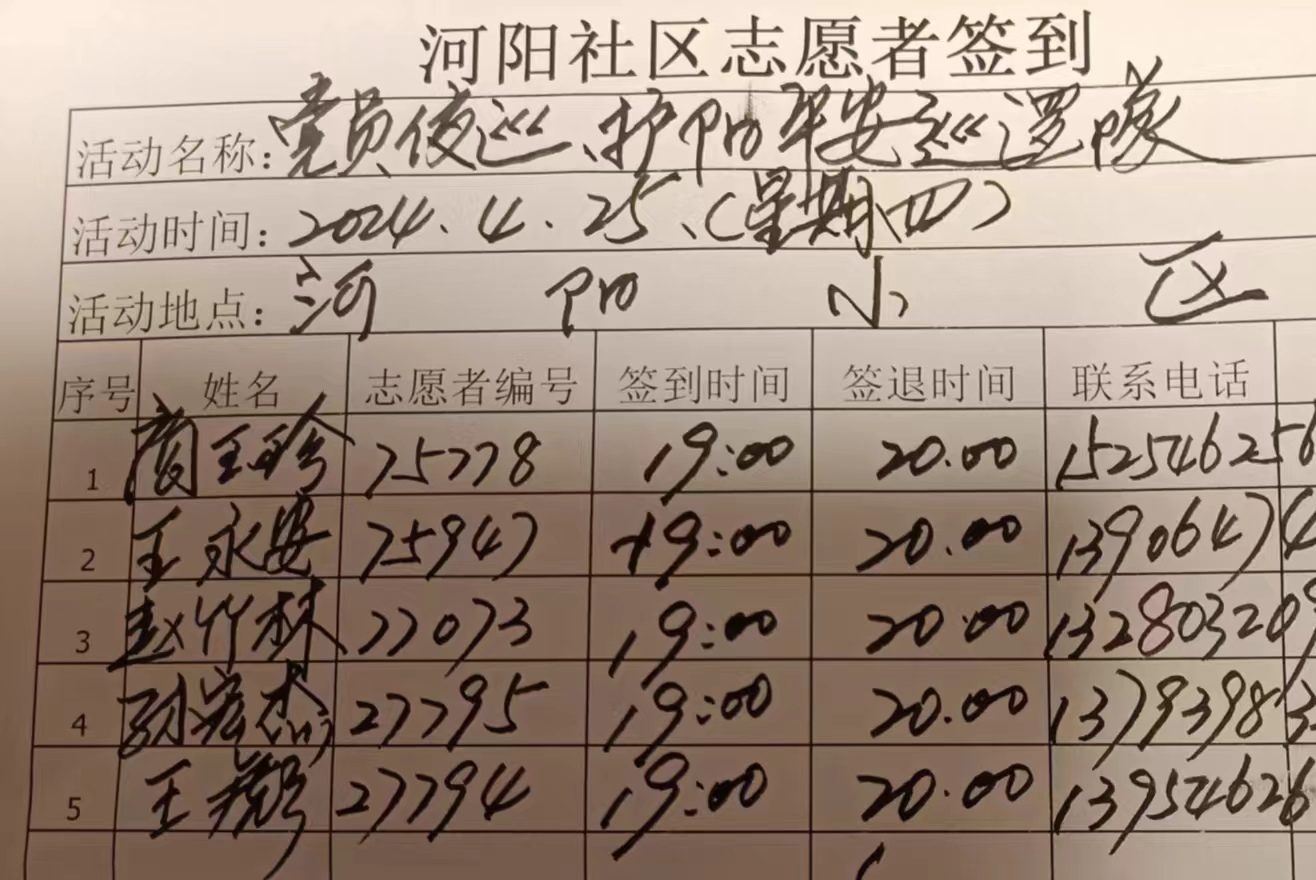 河阳社区志愿者签到
活动名称:党员夜巡、护阳平安巡逻队
活动时间:2024.4.25、(星期四)
活动地点:河阳小区
序号 姓名 志愿者编号 签到时间 签退时间 联系电话
1 商玉珍 75778 19:00 20.00 152546256
2 王永安 75947 19:00 20.00 13906474
3 赵竹林 77073 19:00 20.00 132803209
4 孙宏杰 27795 19:00 20.00 13793983
5 王 27794 19:00 20.00 13954626